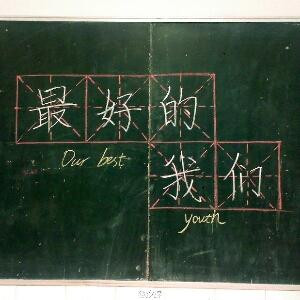 最好的
Our best
我们
youth